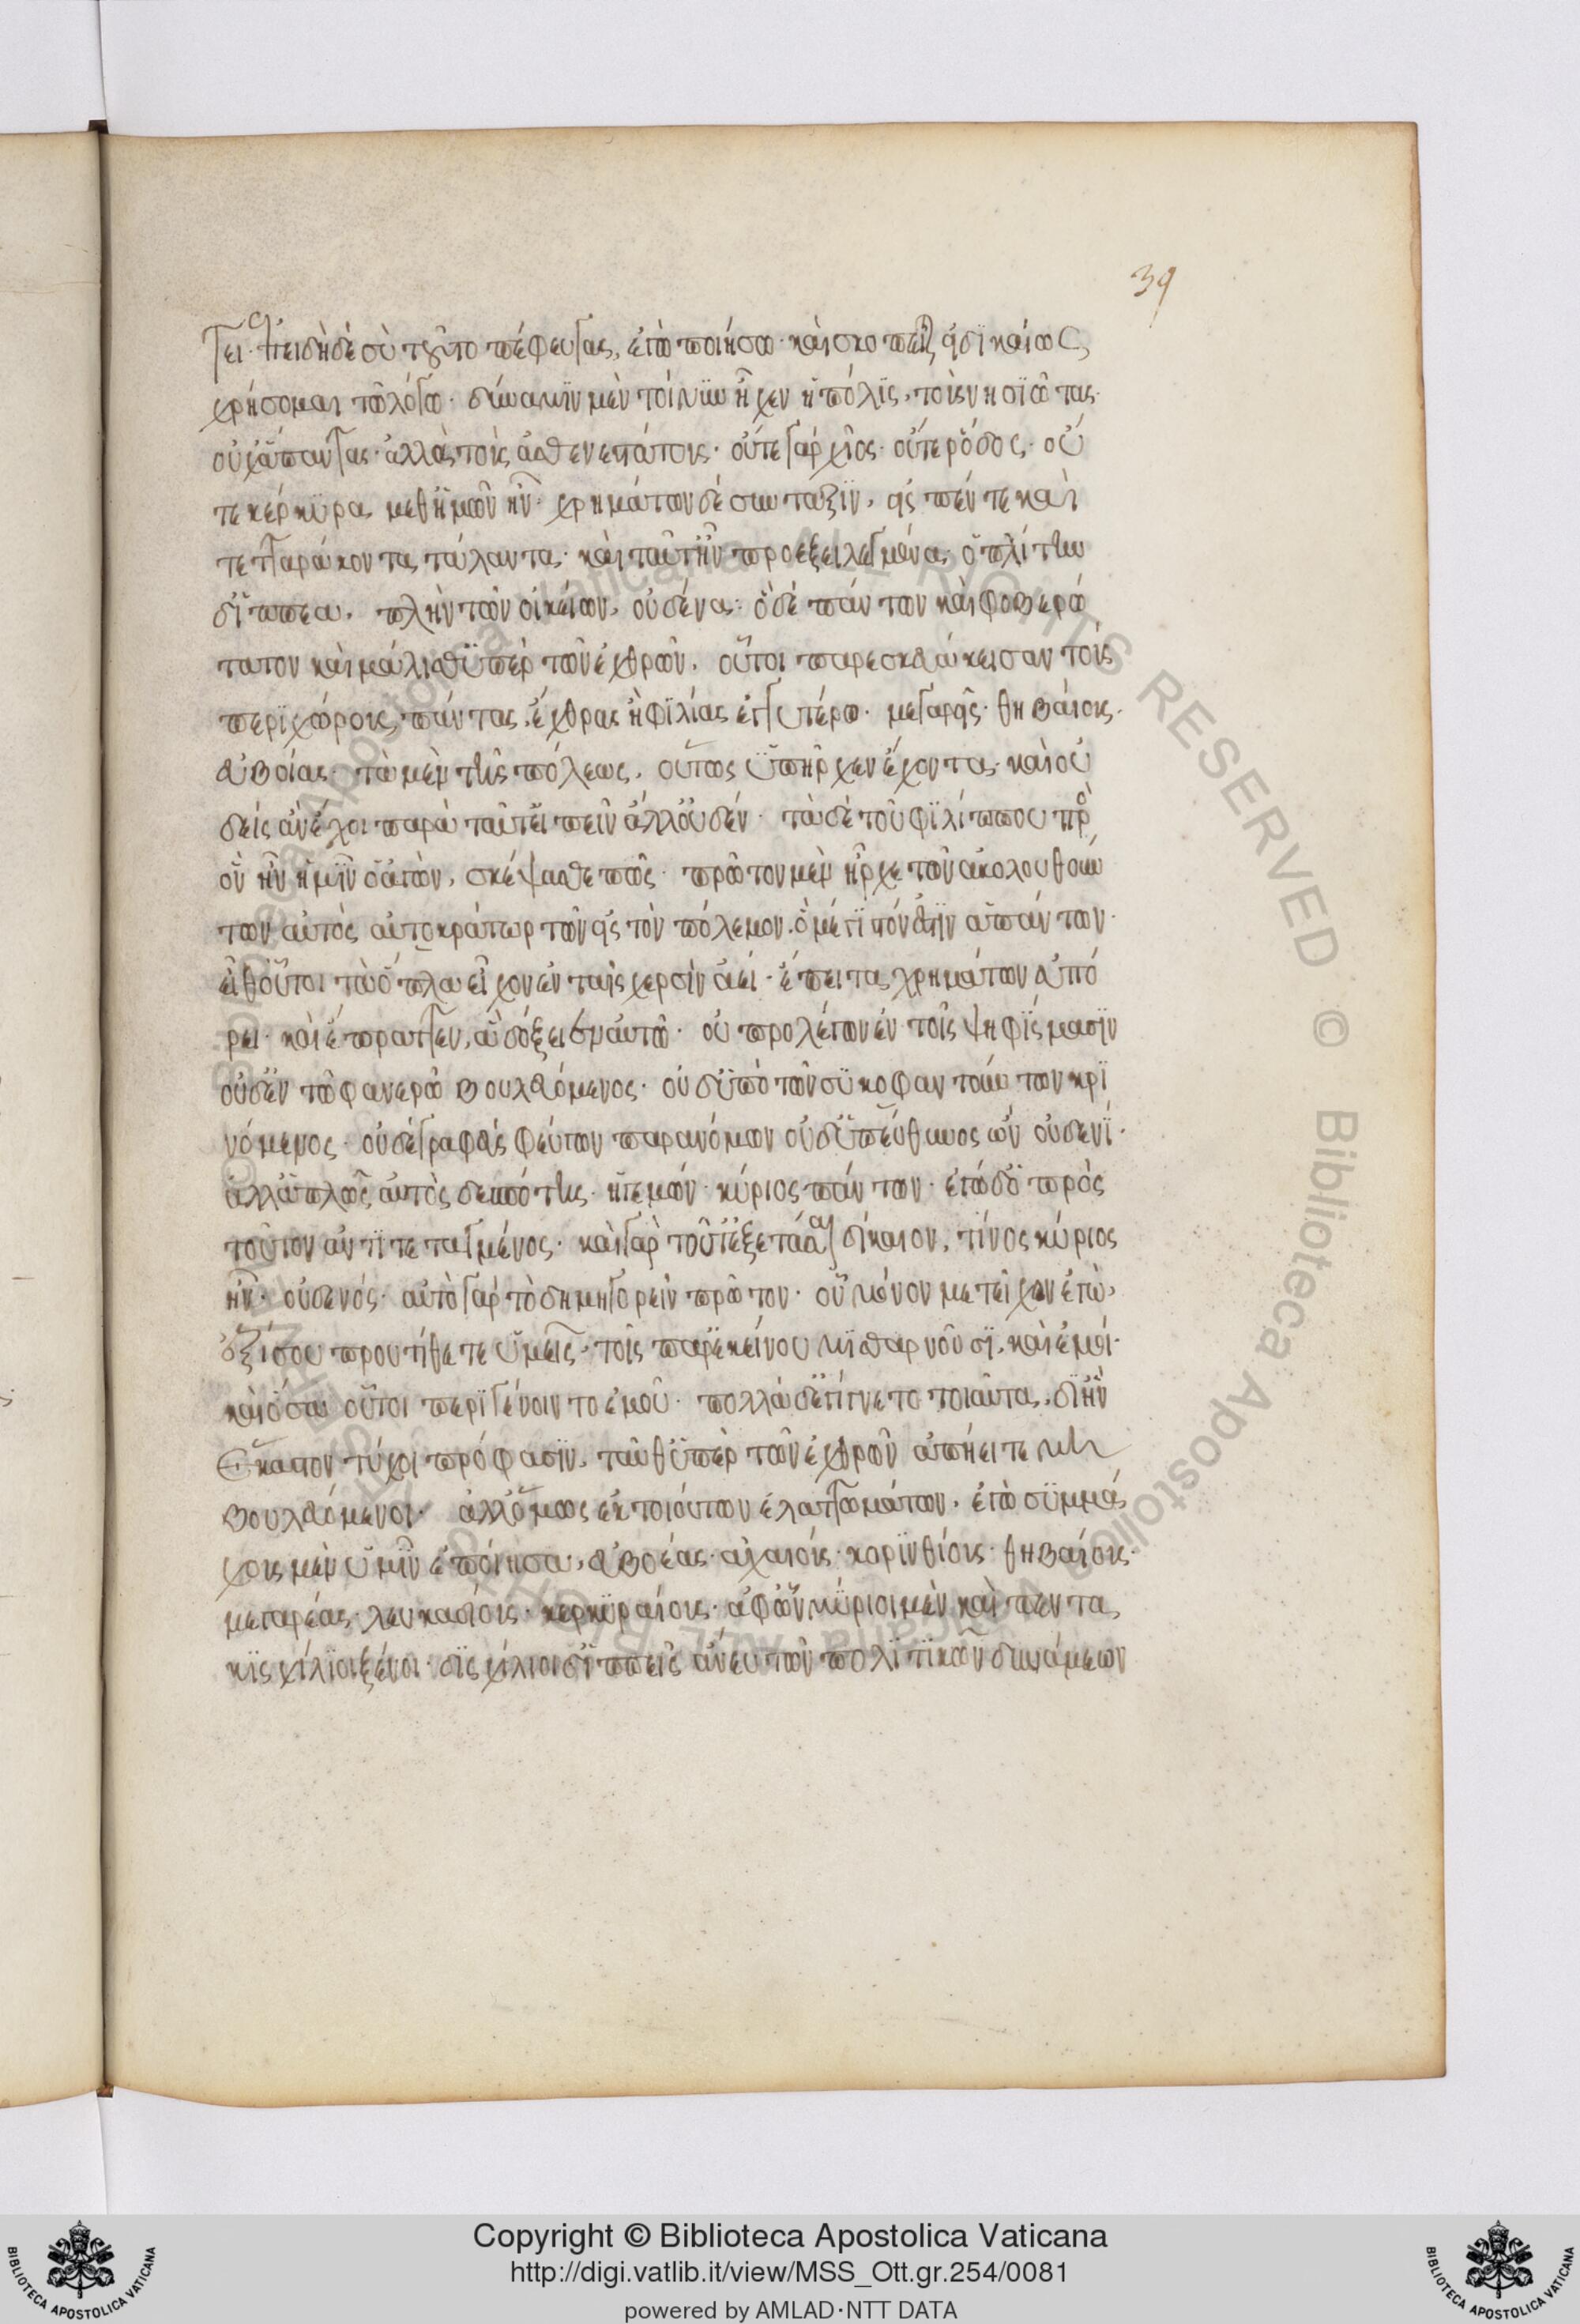 39
γει· ἐπειδὴ δὲ σὺ τοῦτο πέφευγας, ἐγὼ ποιήσω· καὶ σκοπεῖτε εἰ δικαίως
χρήσομαι τῷ λόγῳ· δύναμιν μὲν τοίνυν εἶχεν ἡ πόλις, τοὺς νησιώτας·
οὐχ ἅπαντας· ἀλλὰ τοὺς ἀσθενεστάτους· οὔτε γὰρ χῖος· οὔτε ῥόδος· οὔ
τε κέρκυρα μεθ ἡμῶν ἦν· χρημάτων δὲ σύνταξιν, εἰς πέντε καὶ
τετταράκοντα τάλαντα· καὶ ταῦτ ἦν προεξειλεγμένα· ὁπλίτην
δ ἱππέα, πλὴν τῶν οἰκείων, οὐδένα· ὃ δὲ πάντων καὶ φοβερώ
τατον καὶ μάλισθ ὑπὲρ τῶν ἐχθρῶν, οὗτοι παρεσκευάκεισαν τοὺς
περιχώρους πάντας, ἔχθρας ἢ φιλίας ἐγγυτέρω· μεγαρεῖς· θηβαίους·
εὐβοίας· τὰ μὲν τῆς πόλεως, οὕτως ὑπῆρχεν ἔχοντα· καὶ οὐ
δεὶς ἂν ἔχοι παρὰ ταῦτ εἰπεῖν ἄλλ οὐδέν· τὰ δὲ τοῦ φιλίππου πρὸς
ὃν ἦν ἡμῖν ὁ ἀγὼν, σκέψασθε πῶς· πρῶτον μὲν ἦρχε τῶν ἀκολουθούν
των αὐτὸς αὐτοκράτωρ τῶν εἰς τὸν πόλεμον· ὃ μέγιστόν ἐστιν ἁπάντων·
εἶθ οὗτοι τὰ ὅπλα εἶχον ἐν ταῖς χερσὶν ἀεί· ἔπειτα χρημάτων εὐπό
ρει· καὶ ἔπραττεν, ἃ δόξειεν αὐτῷ· οὐ προλέγων ἐν τοῖς ψηφίσμασιν
οὐδ ἐν τῷ φανερῷ βουλευόμενος· οὐδ ὑπὸ τῶν συκοφαντούντων κρι
νόμενος· οὐδὲ γραφὰς φεύγων παρανόμων οὐδ ὑπεύθυνος ὢν οὐδενί·
ἀλλ ἁπλῶς αὐτὸς δεσπότης· ἡγεμών· κύριος πάντων· ἐγὼ δ ὁ πρὸς
τοῦτον ἀντιτεταγμένος· καὶ γὰρ τοῦτ ἐξετάσαι δίκαιον, τίνος κύριος
ἦν· οὐδενός· αὐτὸ γὰρ τὸ δημηγορεῖν πρῶτον· οὗ μόνον μετεῖχον ἐγὼ,
ἐξ ἴσου προυτίθετε ὑμεῖς· τοῖς παρ ἐκείνου μισθαρνοῦσι, καὶ ἐμοί·
καὶ ὅσα οὗτοι περιγένοιντο ἐμοῦ· πολλὰ δ ἐγίγνετο τοιαῦτα, δι ἣν
ἕκαστον τύχοι πρόφασιν, ταῦθ ὑπὲρ τῶν ἐχθρῶν ἀπῄειτε
βουλευόμενοι· ἀλλ ὅμως ἐκ τοιούτων ἐλαττωμάτων, ἐγὼ συμμά
χους μὲν ὑμῖν ἐποίησα, εὐβοέας· ἀχαιούς· κορινθίους· θηβαίους·
μεγαρέας· λευκαδίους· κερκυραίους· ἀφ ὧν μύριοι μὲν καὶ πεντα
κισχίλιοι ξένοι· δισχίλιοι δ ἱππεῖς ἄνευ τῶν πολιτικῶν δυνάμεων
© Biblioteca Apostolica Vaticana ALL RIGHTS RESERVED © Biblioteca Apostolica Vaticana ALL RIGHTS RESERVED
Copyright © Biblioteca Apostolica Vaticana
http://digi.vatlib.it/view/MSS_Ott.gr.254/0081
powered by AMLAD·NTT DATA
BIBLIOTECA APOSTOLICA VATICANA
BIBLIOTECA APOSTOLICA VATICANA